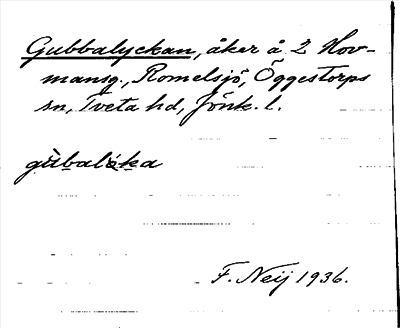 Gubbalyckan, åker å 2 Hov-
mansg., Romelsjö, Öggestorps
sn, Tveta hd, Jönk. l.
gùbalỳka
F. Neij 1936.